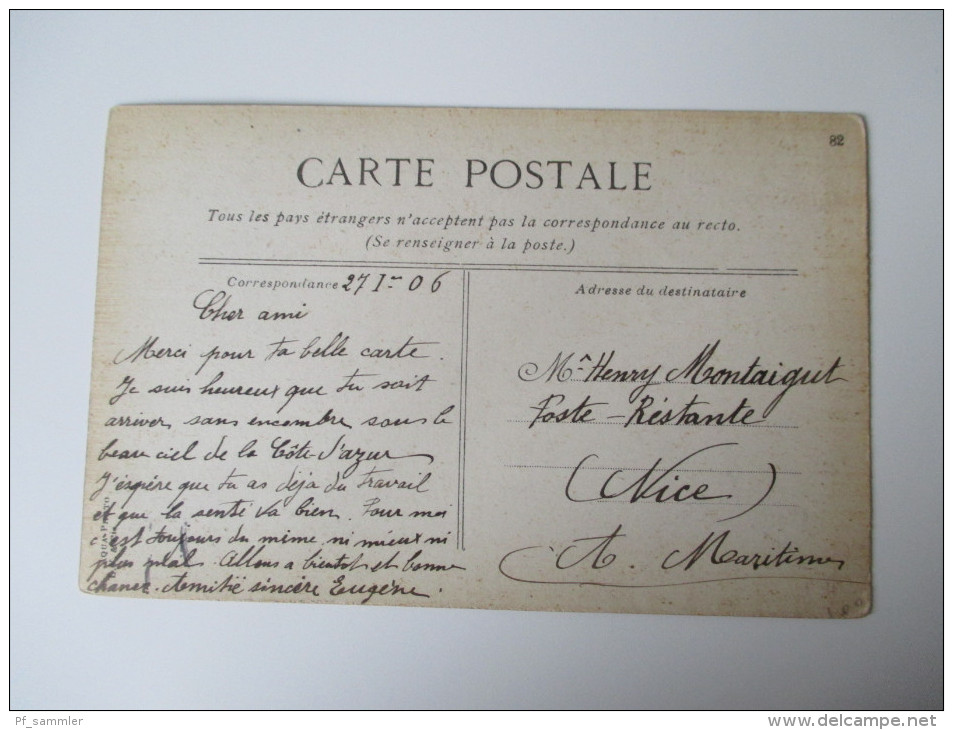 82
CARTE POSTALE
Tous les pays étrangers n'acceptent pas la correspondance au recto.
(Se renseigner à la poste.)
Correspondance 27 1er 06
Adresse du destinataire
Cher ami
Merci pour ta belle carte.
Je suis heureux que tu soit
arriver sans encombre sous le
beau ciel de la Côte d'azur
J'espère que tu as déja du travail
et que la senté va bien. Pour moi
c'est toujours du même ni mieux ni
plus mal. Allons a bientot et bonne
chance. Amitié sincère Eugène.
Mr Henry Montaigut
Poste-Réstante
(Nice)
A. Maritimes
Pf_sammler
www.delcampe.net